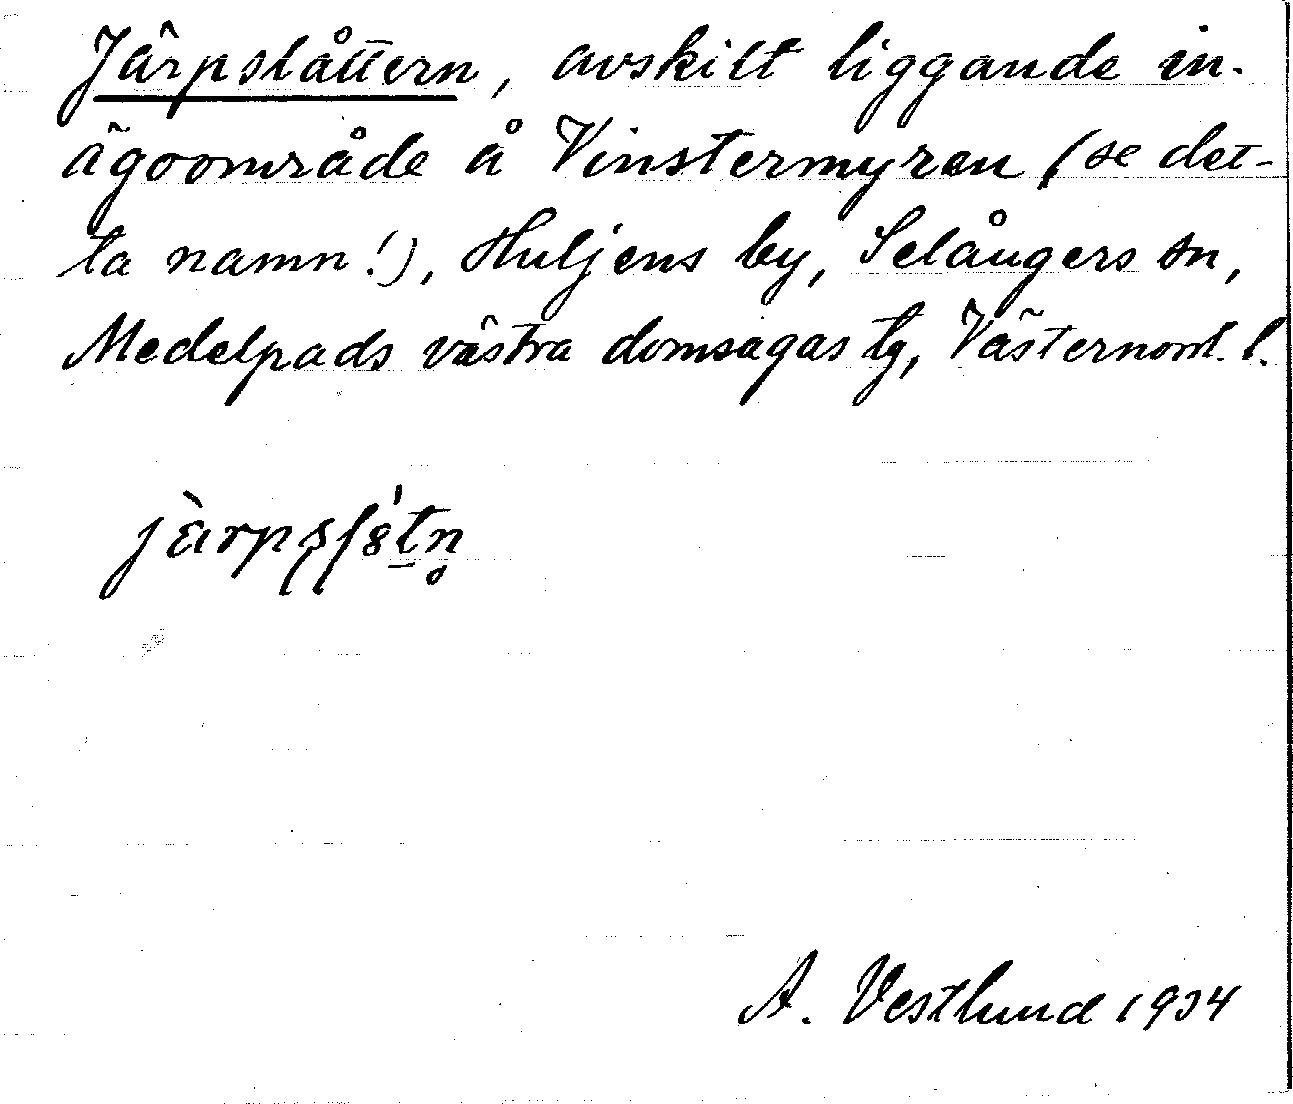 Järpslåttern, avskilt liggande in-
ägoområde å Vinstermyren (se det-
ta namn!), Huljens by, Selångers sn,
Medelpads västra domsagas tg, Västernorrl. l.
A. Vestlund 1934